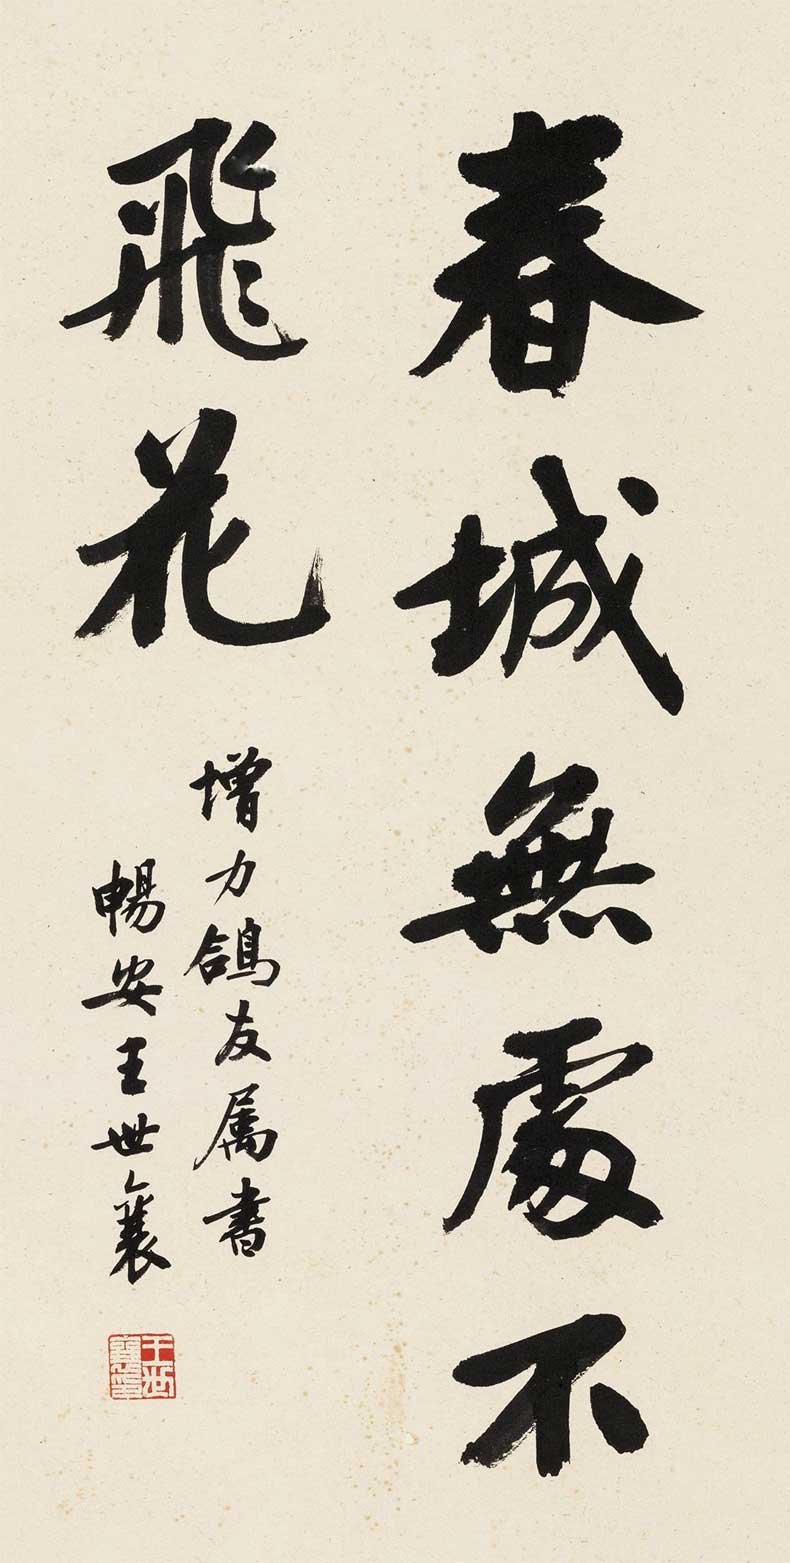 春城無處不
飛花
增力鴿友属書
暢安王世襄
王世襄印